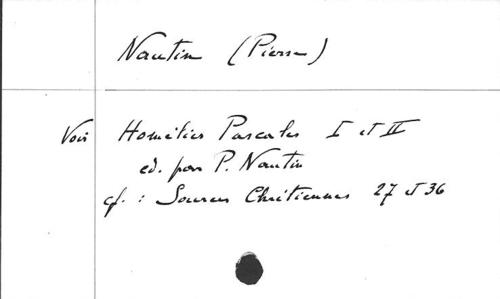 Nautin (Pierre)
Voir Homélies Pascales I et II
ed. par P. Nautin
cf. : Sources Chrétiennes 27 et 36